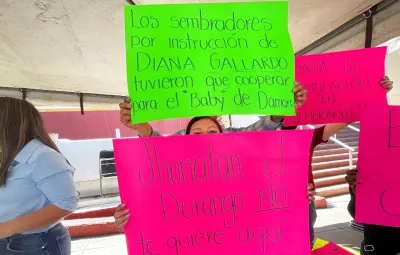 Los sembradores
por instrucción de
DIANA GALLARDO
tuvieron que cooperar
para el "Baby" de Damaris
Jhonatan J
Durango NO
te quiere aquí
EN